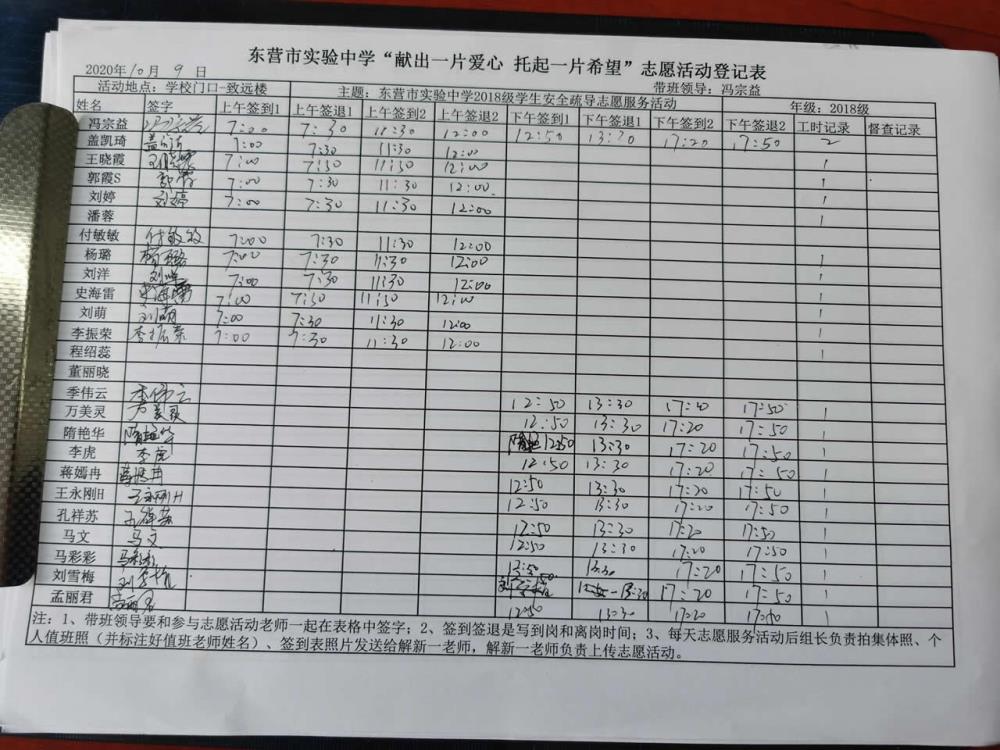 东营市实验中学“献出一片爱心 托起一片希望”志愿活动登记表
2020年10月9日 带班领导：冯宗益
活动地点：学校门口-致远楼 主题：东营市实验中学2018级学生安全疏导志愿服务活动 年级：2018级
姓名 签字 上午签到1 上午签退1 上午签到2 上午签退2 下午签到1 下午签退1 下午签到2 下午签退2 工时记录 督查记录
冯宗益 冯宗益 7:00 7:30 11:30 12:00 12:50 13:30 17:20 17:50 2
盖凯琦 盖凯琦 7:00 7:30 11:30 12:00 1
王晓霞 王晓霞 7:00 7:30 11:30 12:00 1
郭霞S 郭霞 7:00 7:30 11:30 12:00 1
刘婷 刘婷 7:00 7:30 11:30 12:00 1
潘蓉
付敏敏 付敏敏 7:00 7:30 11:30 12:00 1
杨璐 杨璐 7:00 7:30 11:30 12:00 1
刘洋 刘洋 7:00 7:30 11:30 12:00 1
史海雷 史海雷 7:00 7:30 11:30 12:00 1
刘萌 刘萌 7:00 7:30 11:30 12:00 1
李振荣 李振荣 7:00 7:30 11:30 12:00 1
程绍蕊
董丽晓
季伟云 季伟云 12:50 13:30 17:20 17:50 1
万美灵 万美灵 12:50 13:30 17:20 17:50 1
隋艳华 隋艳华 12:50 13:30 17:20 17:50 1
李虎 李虎 12:50 13:30 17:20 17:50 1
蒋嫣冉 蒋嫣冉 12:50 13:30 17:20 17:50 1
王永刚H 王永刚H 12:50 13:30 17:20 17:50 1
孔祥苏 孔祥苏 12:50 13:30 17:20 17:50 1
马文 马文 12:50 13:30 17:20 17:50 1
马彩彩 马彩彩 12:50 13:30 17:20 17:50 1
刘雪梅 刘雪梅 17:20 17:50 1
孟丽君 孟丽君 12:50 13:30 17:20 17:50
注：1、带班领导要和参与志愿活动老师一起在表格中签字；2、签到签退是写到岗和离岗时间；3、每天志愿服务活动后组长负责拍集体照、个
人值班照（并标注好值班老师姓名）、签到表照片发送给解新一老师，解新一老师负责上传志愿活动。